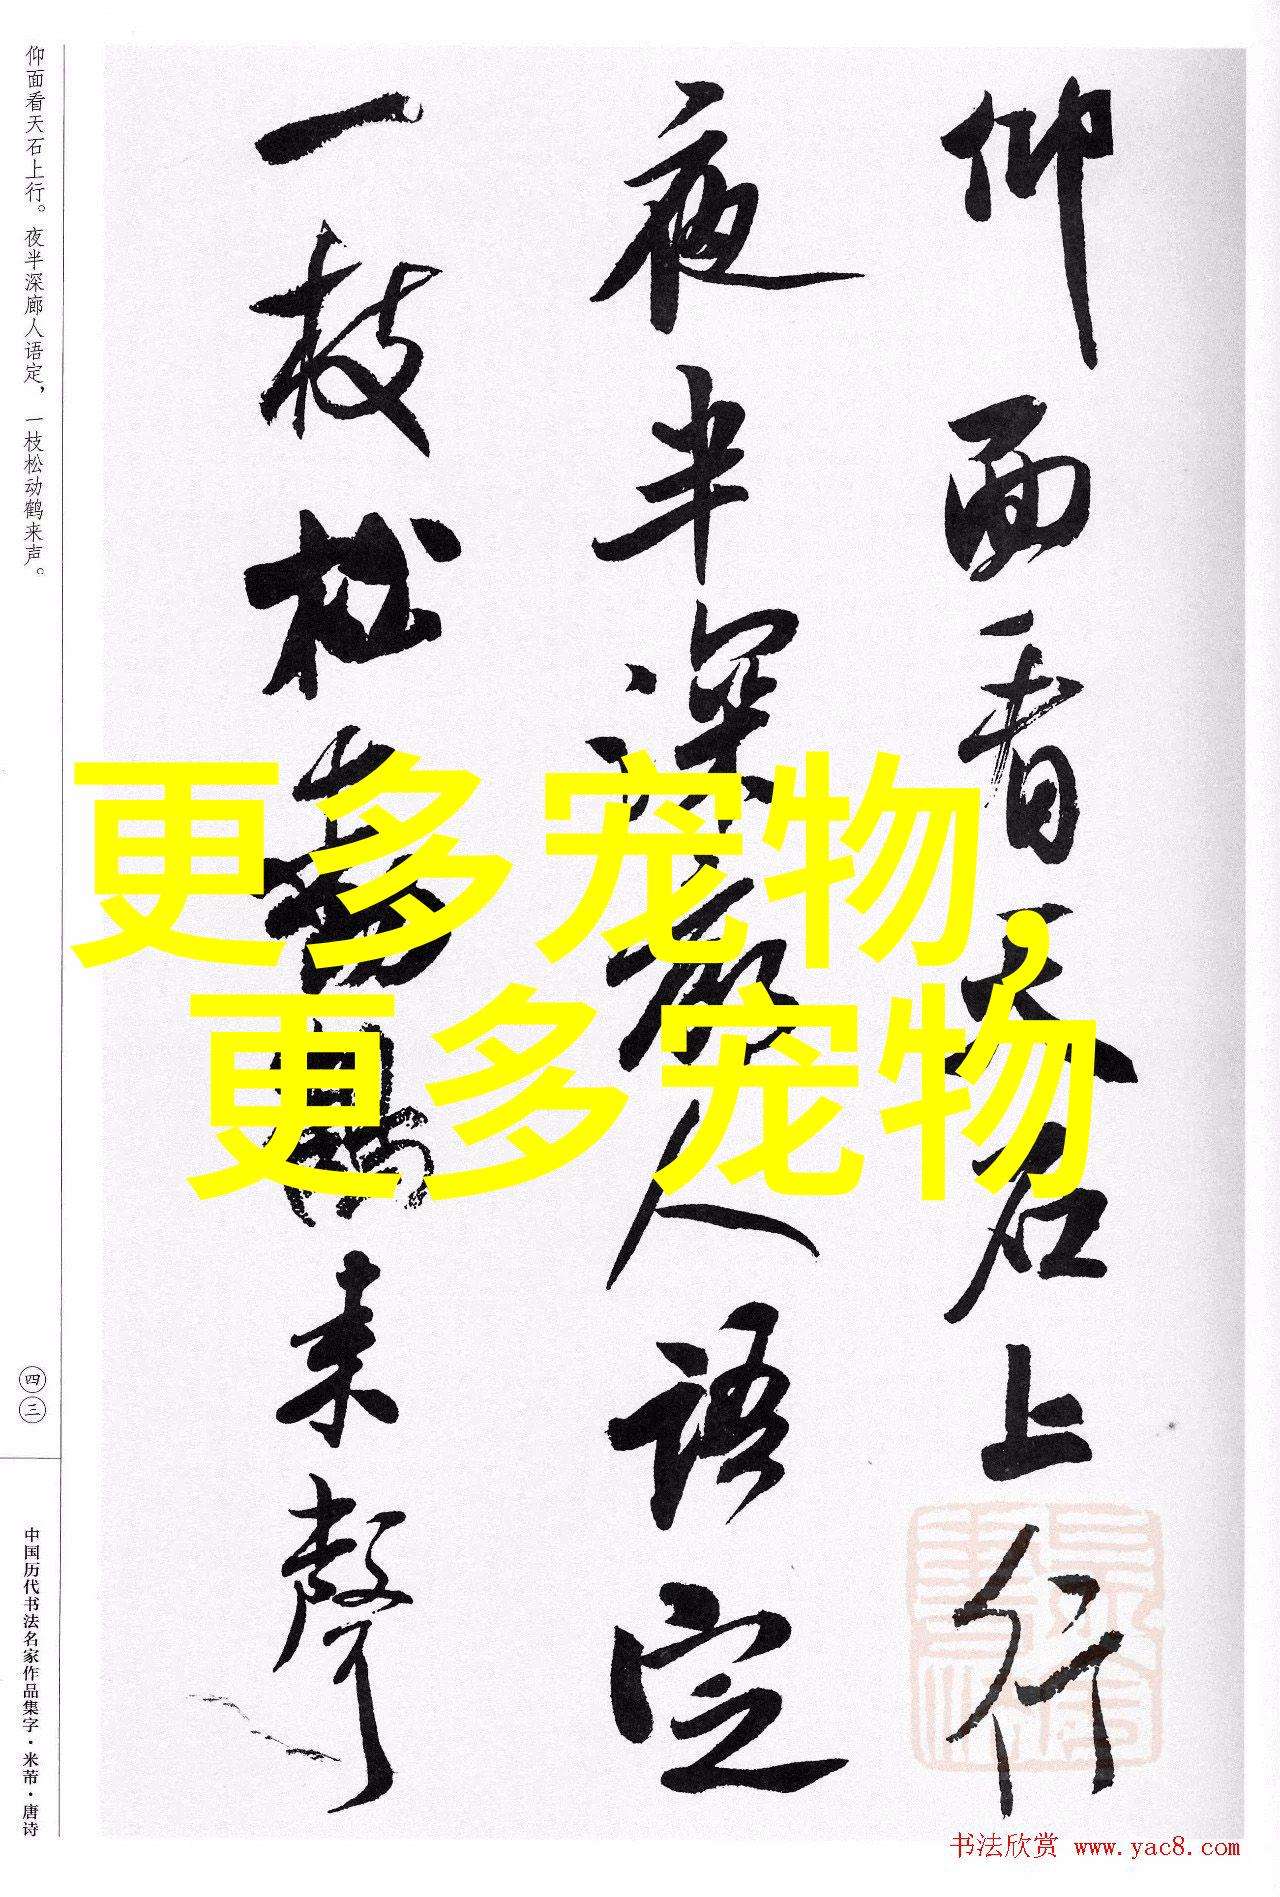 仰面看天石上行
夜半深廊人语定
一枝松动鹤来聲
仰面看天石上行。夜半深廊人语定，一枝松动鹤来声。
四三
中国历代书法名家作品集字·米芾·唐诗
更多宠物，
更多宠物
书法欣赏 www.yac8.com